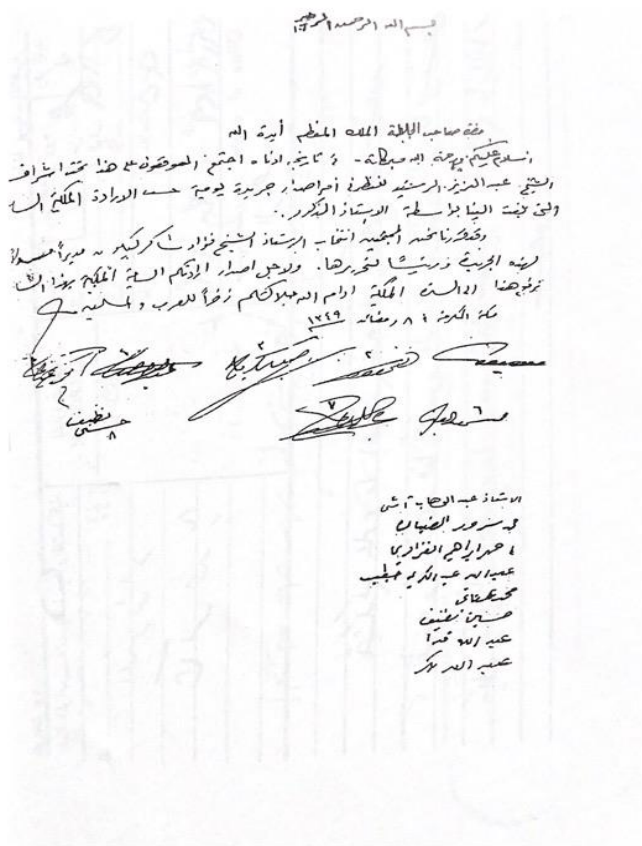 بسم الله الرحمن الرحيم
حضرة صاحب الجلالة الملك المعظم أيده الله
السلام عليكم ورحمة الله وبركاته - في تاريخ ادناه اجتمع الموقعون على هذا تحت اشراف
الشيخ عبد العزيز الرشيد للنظر في أمر اصدار جريدة يومية حسب الارادة الملكية
التي بلغت الينا بواسطة الاستاذ المذكور.
وقد قررنا نحن المجتمعين انتخاب الاستاذ الشيخ فؤاد شاكر ليكون مديراً مسؤولا
لهذه الجريدة ورئيسًا لتحريرها. ولاجل اصدار ارادتكم السامية الملكية بهذا
نرفع هذا الى السدة الملكية ادام الله جلالتكم ذخراً للعرب والمسلمين
مكة المكرمة في ٨ رمضان ١٣٤٩
الاستاذ عبد الوهاب آشي
محمد سرور الصبان
احمد ابراهيم الغزاوي
عبد الله عبد الكريم خطيب
حسين نظيف
عبد الله فدا
عبد الله